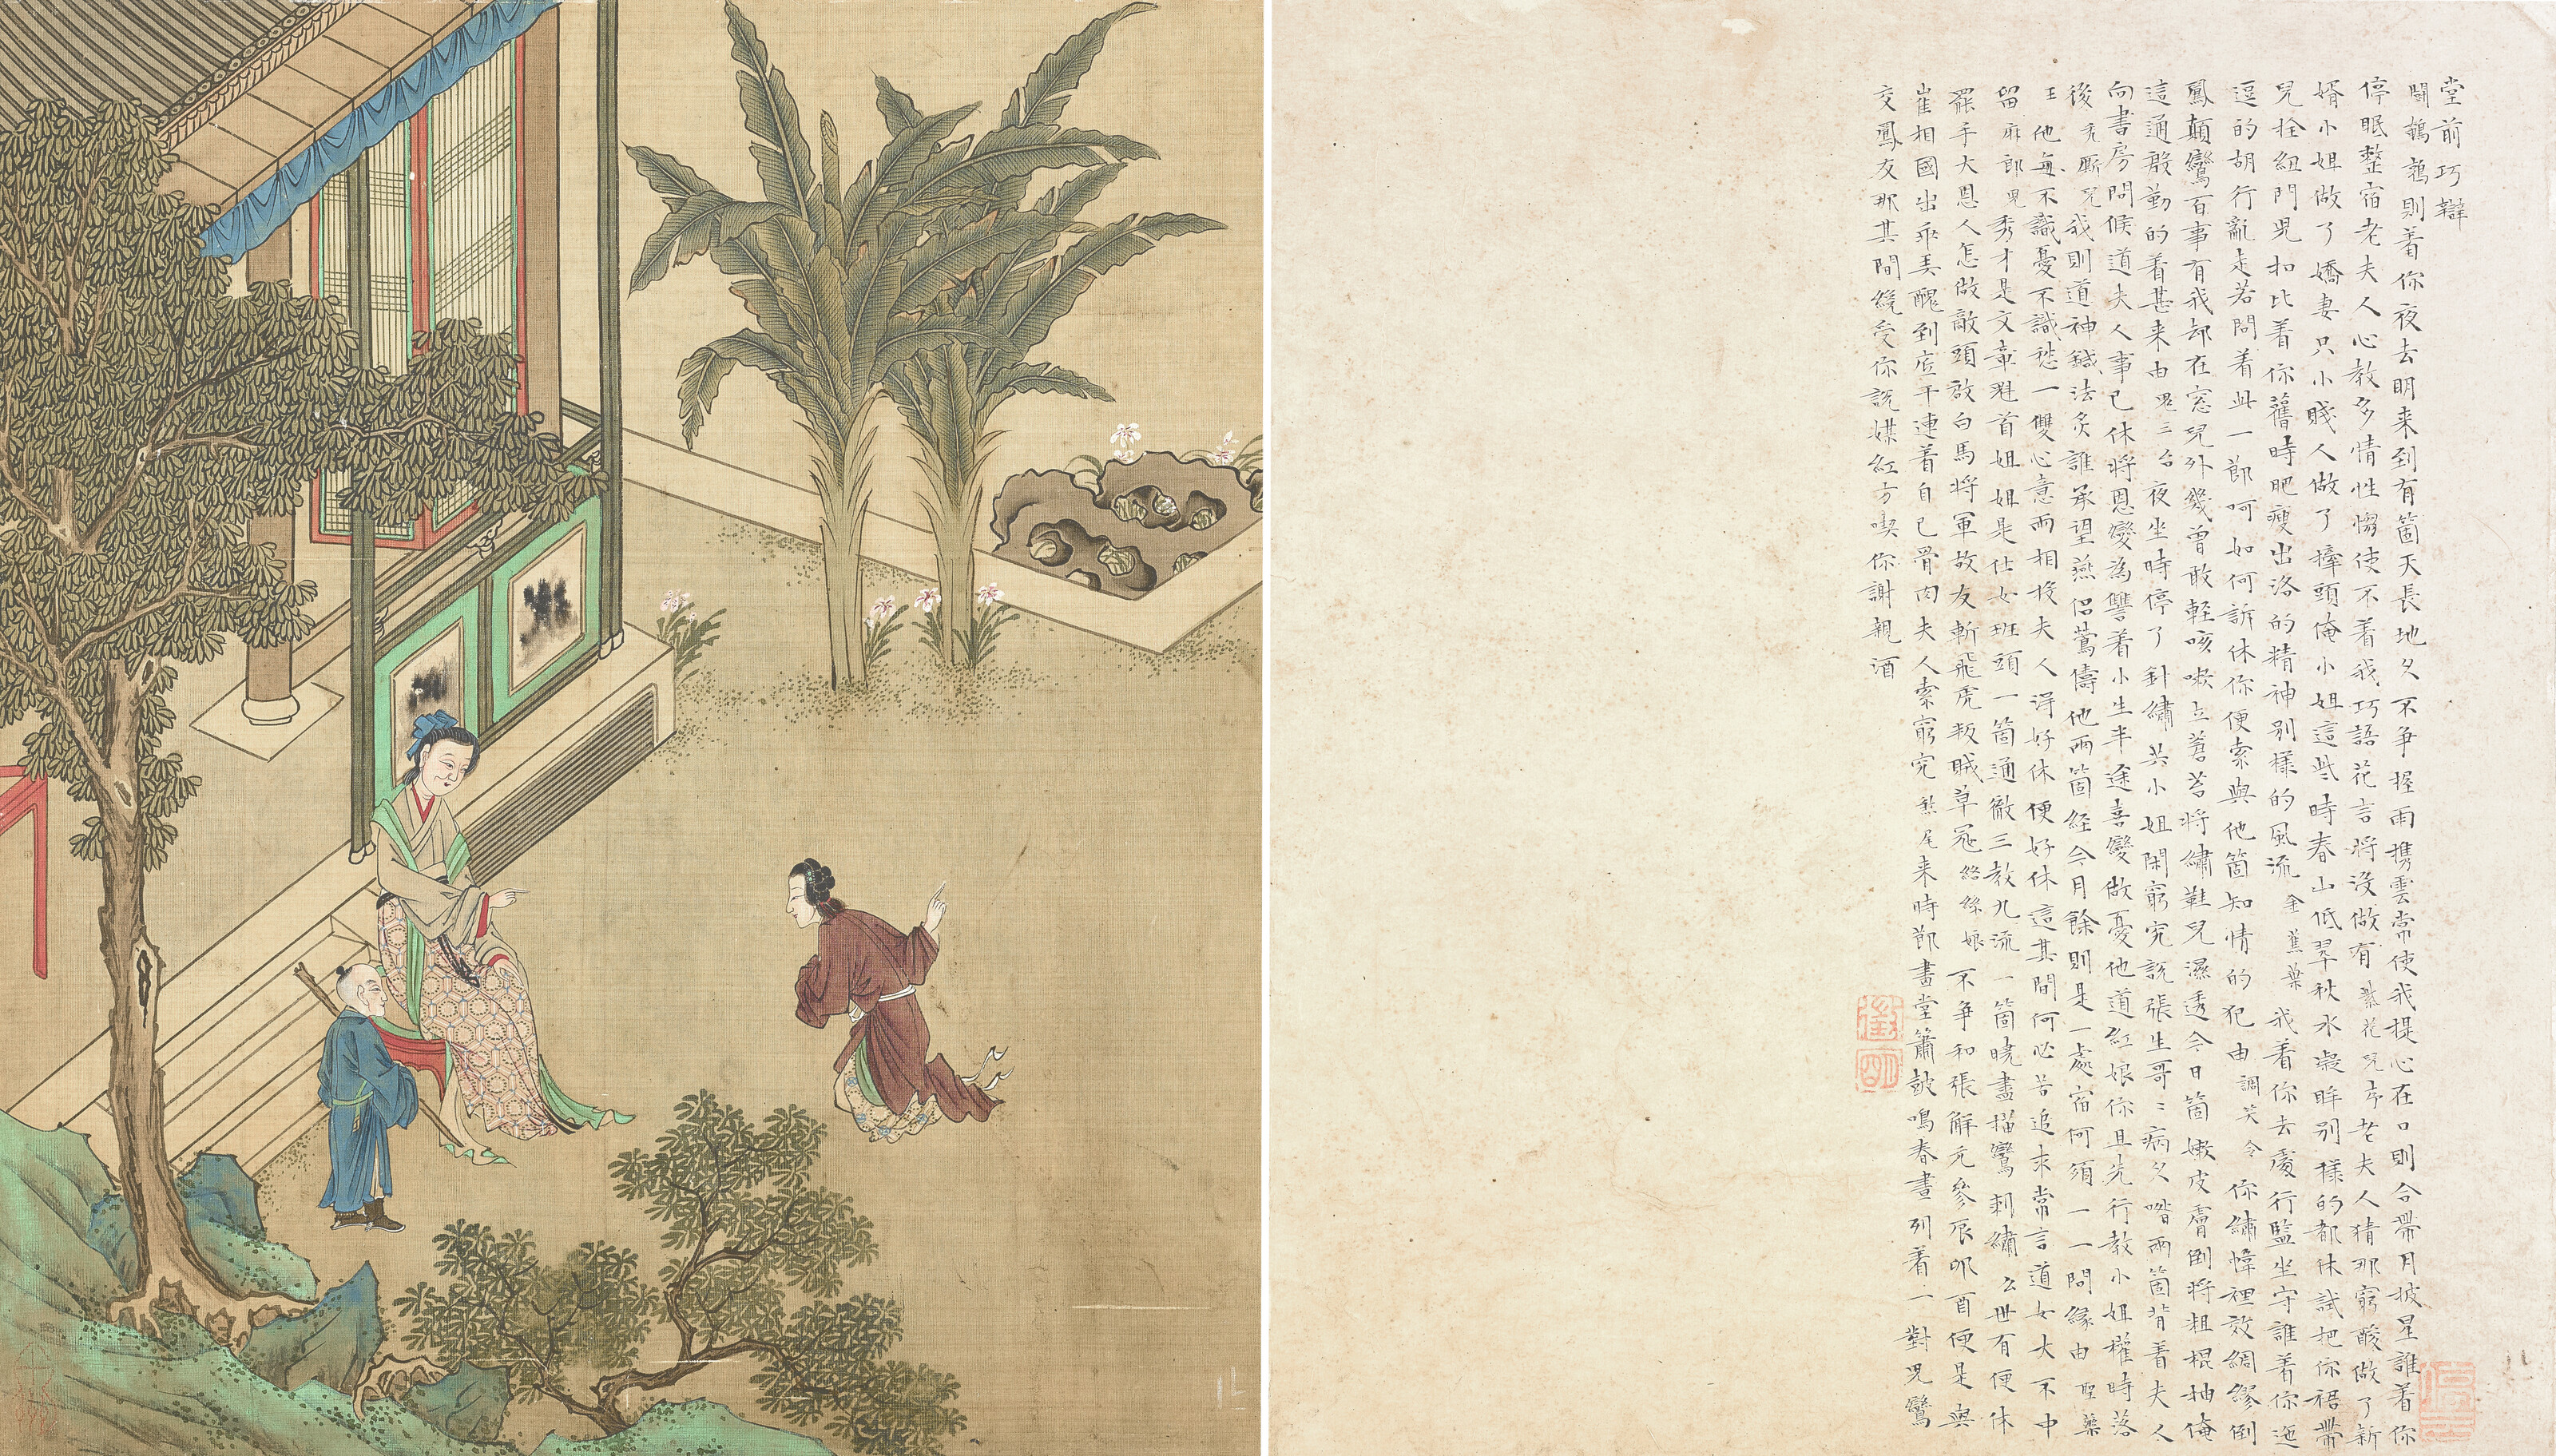 堂前巧辯
鬪鵪鶉則着你夜去明来到有箇天長地久不争握雨携雲常使我提心在口則合帶月披星誰着你
停眠整宿老夫人心教多情性㑳使不着我巧語花言將沒做有紫花兒序老夫人猜那窮酸做了新
婿小姐做了嬌妻只小賤人做了撁頭俺小姐這些時春山低翠秋水凝眸别樣的都休試把你裙帶
兒拴紐門兒扣比着你舊時肥瘦出落的精神别樣的風流金蕉葉我着你去處行監坐守誰着你迤
逗的胡行亂走若問着此一節呵如何訴休你便索與他箇知情的犯由調笑令你繡幃裡效綢繆倒
鳳顛鸞百事有我却在窓兒外幾曾敢輕咳嗽立蒼苔將繡鞋兒濕透今日箇嫩皮膚倒將粗棍抽俺
這通殷勤的着甚来由鬼三台夜坐時停了針繡共小姐閑窮究說張生哥〻病久喒兩箇背着夫人
向書房問候道夫人事已休將恩變為讐着小生半途喜變做憂他道紅娘你且先行教小姐權時落
後禿厮兒我則道神鍼法灸誰承望燕侣鶯儔他兩箇經今月餘則是一處宿何須一一問緣由聖藥
王他每不識憂不識愁一雙心意兩相投夫人得好休便好休這其間何必苦追求常言道女大不中
留麻郎兒秀才是文章魁首姐姐是仕女班頭一箇通徹三教九流一箇曉盡描鸞刺繡么世有便休
罷手大恩人怎做敵頭啟白馬將軍故友斬飛虎叛賊草寇絡絲娘不争和張解元參辰卯酉便是與
崔相國出乖弄醜到底干連着自己骨肉夫人索窮究煞尾来時節畫堂簫鼓鳴春晝列着一對兒鸞
交鳳友那其間纔受你說媒紅方喫你謝親酒
徵明
停雲